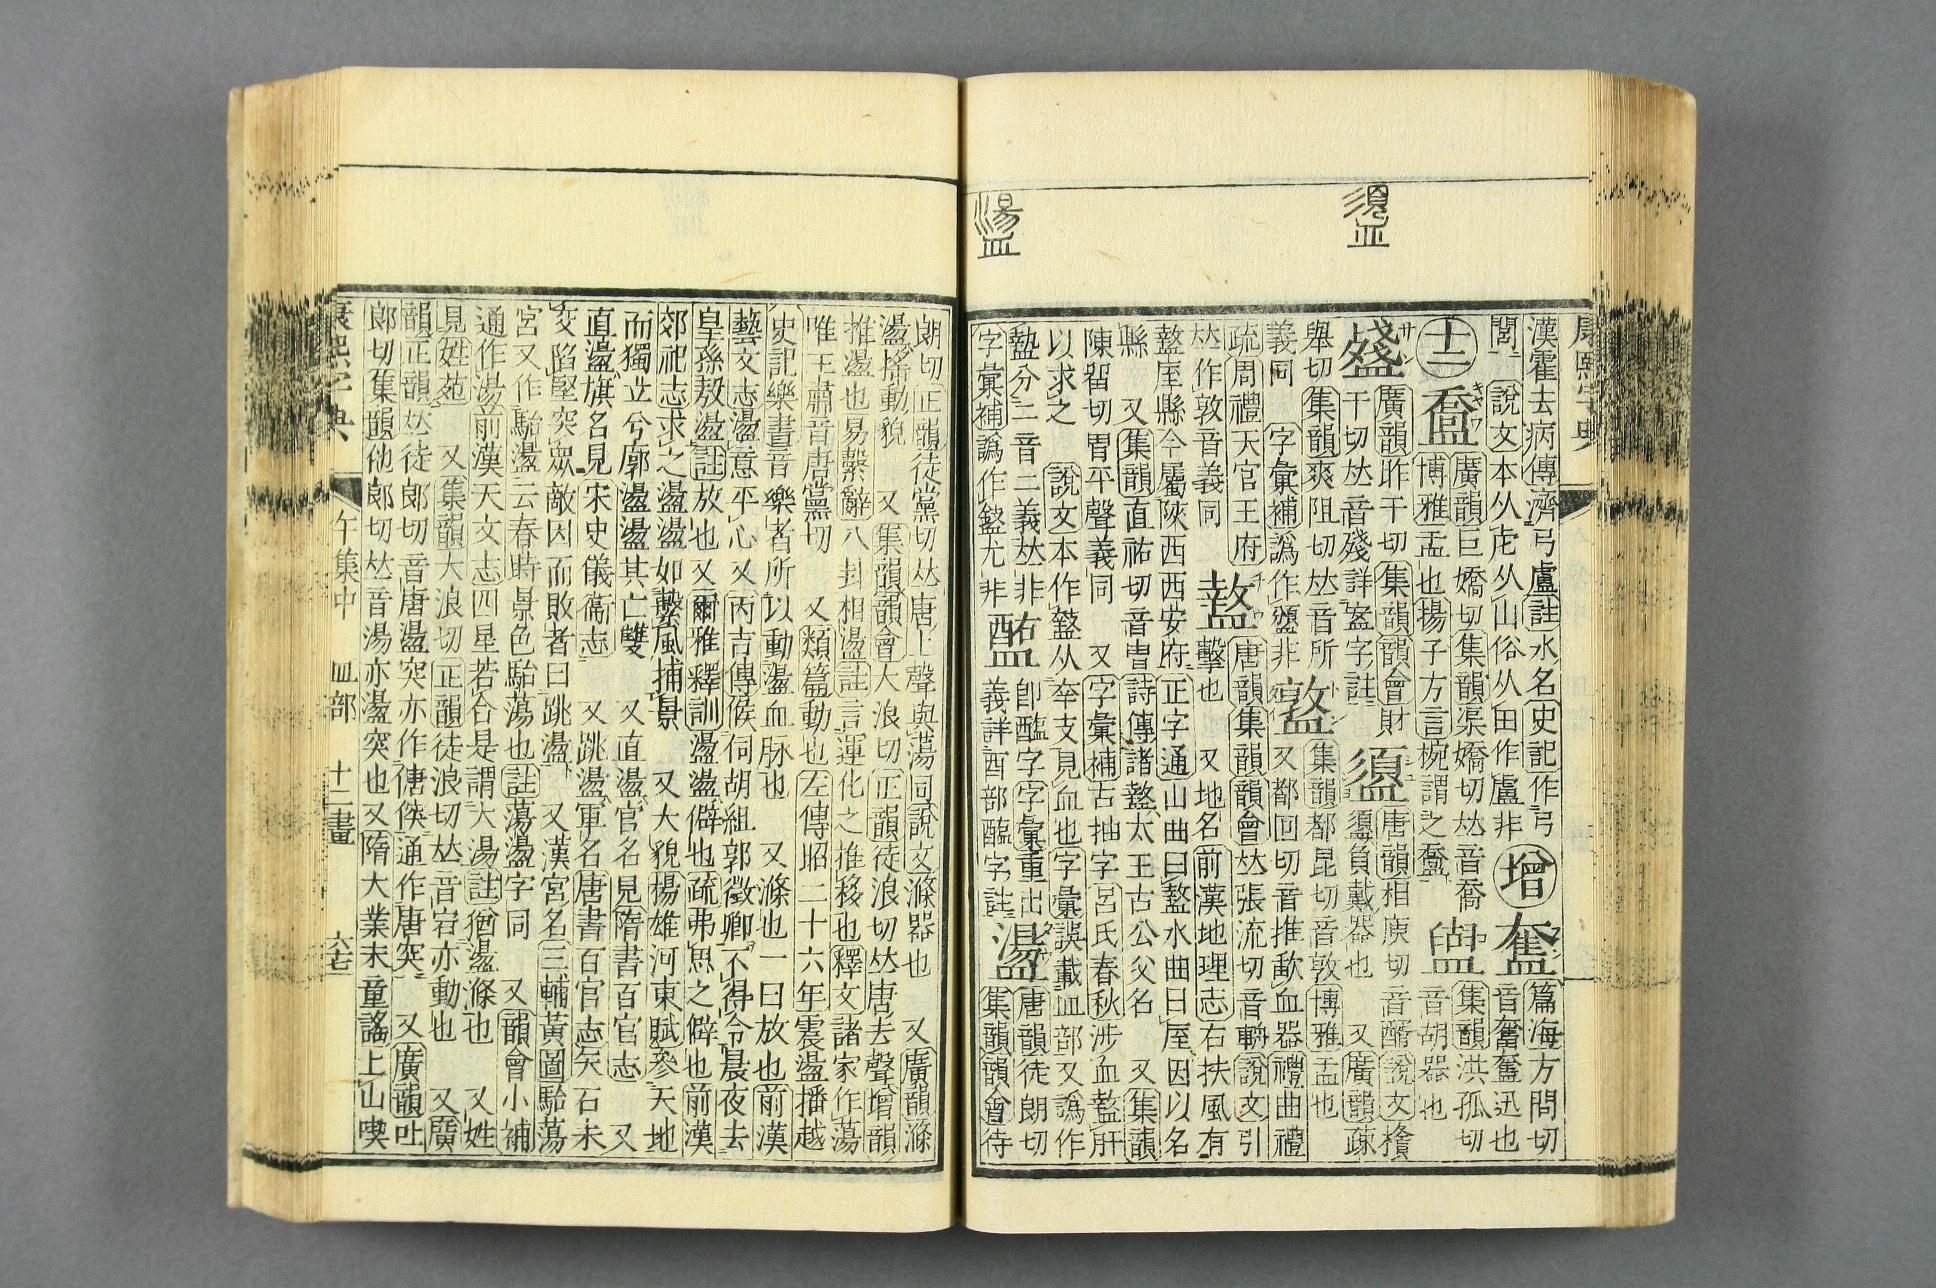 須皿
盪
康熙字典
漢霍去病傳濟弓盧註水名史記作弓
閭 說文本从虍从山俗从田作盧非 增 𥃫 篇海方問切
音奮𥃫迅也
十二 𥂋 廣韻巨嬌切集韻渠嬌切𠀤音喬
博雅盂也揚子方言椀謂之𥂋 集韻洪孤切
音胡器也
廣韻昨干切集韻韻會財
干切𠀤音殘詳盞字註 唐韻相庾切音醑說文檟
負戴器也 又廣韻疎
舉切集韻爽阻切𠀤音所 集韻都昆切音敦博雅盂也
義同 字彙補譌作盨非 又都回切音推歃血器禮曲禮
疏周禮天官王府
𠀤作敦音義同 盩 唐韻集韻韻會𠀤張流切音輈說文引
擊也 又地名前漢地理志右扶風有
盩厔縣今屬陝西西安府正字通山曲曰盩水曲曰厔因以名
縣 又集韻直祐切音胄詩傳諸盩太王古公父名 又集韻
陳留切胄平聲義同 又字彙補古抽字呂氏春秋涉血盩肝
以求之 說文本作盩从㚔攴見血也字彙誤載皿部又譌作
盭分二音二義𠀤非 卽醢字字彙重出 唐韻徒朗切
字彙補譌作盩尤非 義詳酉部醢字註 盪 集韻韻會待
朗切正韻徒黨切𠀤唐上聲與蕩同說文滌器也 又廣韻滌
盪搖動貌 又集韻韻會大浪切正韻徒浪切𠀤唐去聲增韻
推盪也易繫辭八卦相盪註言運化之推移也釋文諸家作蕩
唯王肅音唐黨切 又類篇動也左傳昭二十六年震盪播越
史記樂書音樂者所以動盪血脉也 又滌也一曰放也前漢
藝文志盪意平心又丙吉傳候伺胡組郭徵卿不得令晨夜去
皇孫敖盪註放也又爾雅釋訓盪盪僻也疏弗思之僻也前漢
郊祀志求之盪盪如繫風捕景 又大貌楊雄河東賦參天地
而獨立兮廓盪盪其亡雙 又直盪官名見隋書百官志 又
直盪旗名見宋史儀衞志 又跳盪軍名唐書百官志矢石未
交陷堅突眾敵因而敗者曰跳盪 又漢宮名三輔黃圖駘蕩
宮又作駘盪云春時景色駘蕩也註蕩盪字同 又韻會小補
通作湯前漢天文志四星若合是謂大湯註猶盪滌也 又姓
見姓苑 又集韻大浪切正韻徒浪切𠀤音宕亦動也 又廣
韻正韻𠀤徒郎切音唐盪突亦作傏傸通作唐突 又廣韻吐
郎切集韻他郎切𠀤音湯亦盪突也又隋大業末童謠上山喫
康熙字典 午集中 皿部 十二畫 六七